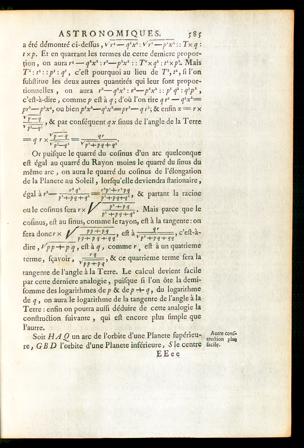 ASTRONOMIQUES. 585
a été démontré ci-dessus, √r² — q²x² : √r² — p²x² :: T × q :
t × p. Et en quarrant les termes de cette derniere propor-
tion, on aura r² — q²x² : r² — p²x² :: T² × q² : t² × p². Mais
T² : t² :: p³ : q³, c'est pourquoi au lieu de T², t², si l'on
substitue les deux autres quantités qui leur sont propor-
tionnelles, on aura r² — q²x² : r² — p²x² :: p³ q² : q³ p²,
c'est-à-dire, comme p est à q ; d'où l'on tire q r² — q³x² =
p r² — p³x², ou bien p³x² — q³x² = p r² — q r² ; & enfin x = r ×
√p — q / √p³ — q³, & par conséquent q x sinus de l'angle de la Terre
= q r × √p — q / √p³ — q³ = q r / √p² + p q + q².
Or puisque le quarré du cosinus d'un arc quelconque
est égal au quarré du Rayon moins le quarré du sinus du
même arc, on aura le quarré du cosinus de l'élongation
de la Planete au Soleil, lorsqu'elle deviendra stationaire,
égal à r² — r² q² / p² + p q + q² = r² p² + r² p q / p² + p q + q², & partant la racine
ou le cosinus sera r × √ p² + p q / p² + p q + q². Mais parce que le
cosinus, est au sinus, comme le rayon, est à la tangente : on
fera donc r × √ p p + p q / p p + p q + q q, est à q r / √p² + p q + q q, c'est-à-
dire, √p p + p q, est à q, comme r, est à un quatrieme
terme, sçavoir, r q / √p p + p q, & ce quatrieme terme sera la
tangente de l'angle à la Terre. Le calcul devient facile
par cette derniere analogie, puisque si l'on ôte la demi-
somme des logarithmes de p & de p + q, du logarithme
de q, on aura le logarithme de la tangente de l'angle à la
Terre : enfin on pourra aussi déduire de cette analogie la
construction suivante, qui est encore plus simple que
l'autre.
Soit H A Q un arc de l'orbite d'une Planete supérieu-
re, G B D l'orbite d'une Planete inférieure, S le centre
Autre cons-
truction plus
facile.
E E e e